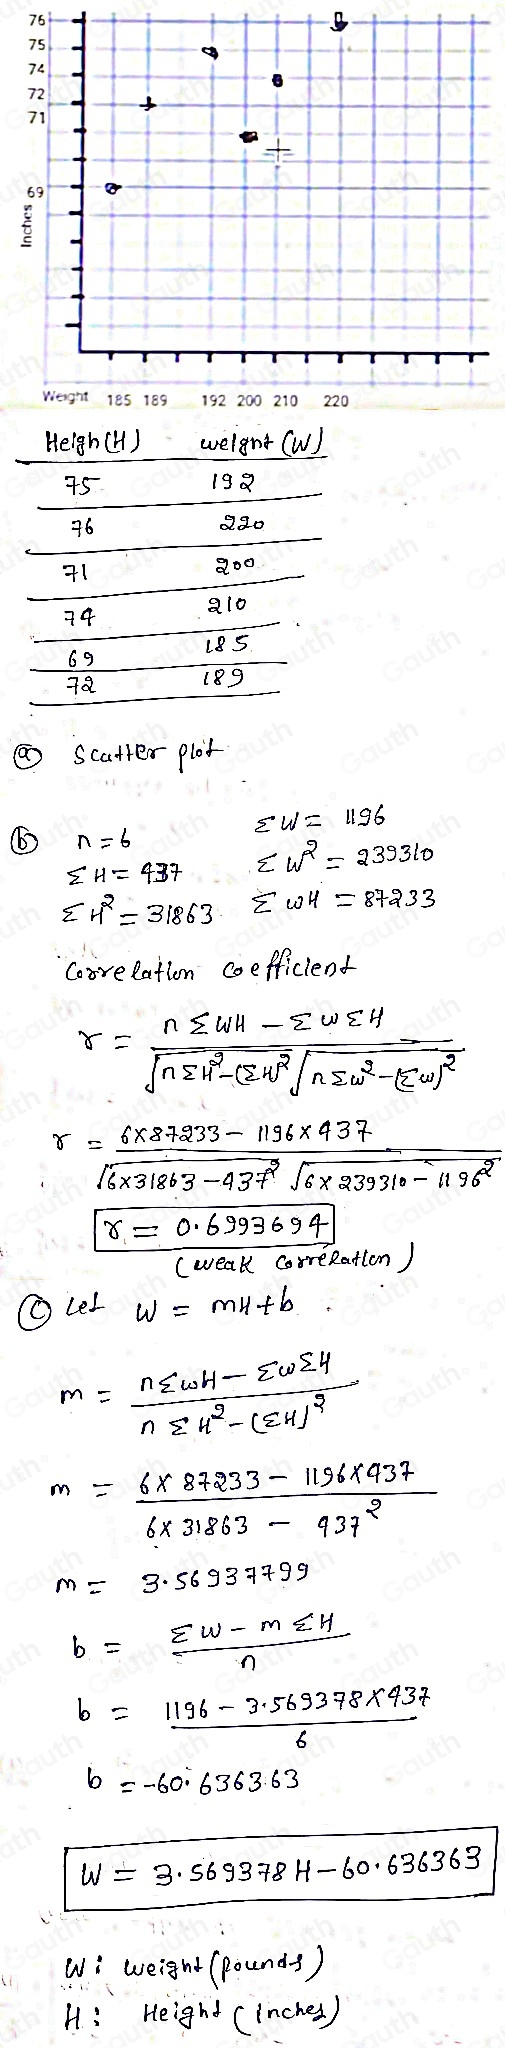 76
75
74
72
71
69
Inches
Weight 185 189 192 200 210 220
Heigh(H) weight (W)
75 192
76 220
71 200
74 210
69 185
72 189
(a) Scatter plot
(b) n = 6 ΣW = 1196
ΣH = 437 ΣW² = 239310
ΣH² = 31863 ΣWH = 87233
Correlation coefficient
r = (nΣWH - ΣWΣH) / (√(nΣH² - (ΣH)²) √(nΣW² - (ΣW)²))
r = (6×87233 - 1196×437) / (√(6×31863 - 437²) √(6×239310 - 1196²))
r = 0.6993694
(weak correlation)
(c) Let W = mH + b.
m = (nΣWH - ΣWΣH) / (nΣH² - (ΣH)²)
m = (6×87233 - 1196×437) / (6×31863 - 437²)
m = 3.56937799
b = (ΣW - mΣH) / n
b = (1196 - 3.569378×437) / 6
b = -60.636363
W = 3.569378H - 60.636363
W: weight (pounds)
H: Height (Inches)